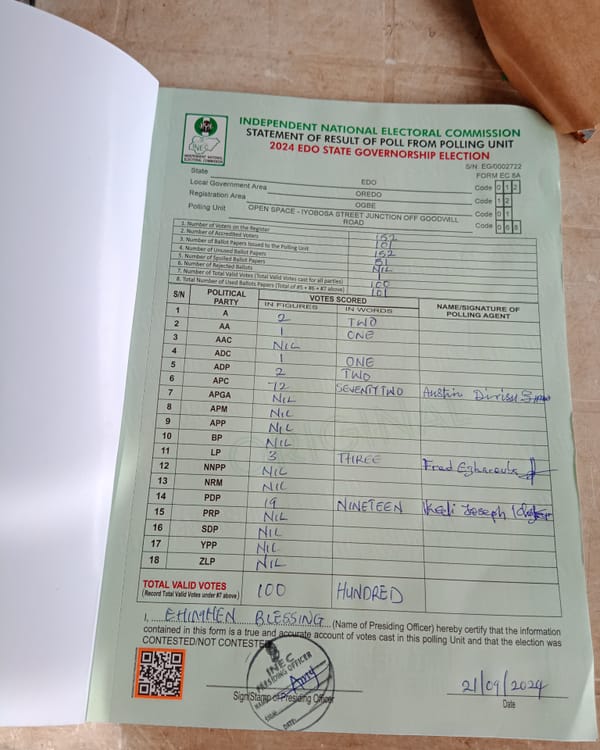 INDEPENDENT NATIONAL ELECTORAL COMMISSION
STATEMENT OF RESULT OF POLL FROM POLLING UNIT
2024 EDO STATE GOVERNORSHIP ELECTION
INEC
INDEPENDENT NATIONAL ELECTORAL COMMISSION
S/N: EG/0002722
FORM EC 8A
State EDO Code 0 1 2
Local Government Area OREDO Code 1 2
Registration Area OGBE Code 0 1
Polling Unit OPEN SPACE - IYOBOSA STREET JUNCTION OFF GOODWILL ROAD Code 0 6 8
1. Number of Voters on the Register 152
2. Number of Accredited Voters 101
3. Number of Ballot Papers Issued to the Polling Unit 152
4. Number of Unused Ballot Papers 51
5. Number of Spoiled Ballot Papers NIL
6. Number of Rejected Ballots 1
7. Number of Total Valid Votes (Total Valid Votes cast for all parties) 100
8. Total Number of Used Ballots Papers (Total of #5 + #6 + #7 above) 101
S/N POLITICAL PARTY VOTES SCORED NAME/SIGNATURE OF POLLING AGENT
IN FIGURES IN WORDS
1 A 2 TWO
2 AA 1 ONE
3 AAC NIL
4 ADC 1 ONE
5 ADP 2 TWO
6 APC 72 SEVENTY TWO Austin
7 APGA NIL
8 APM NIL
9 APP NIL
10 BP NIL
11 LP 3 THREE Fred
12 NNPP NIL
13 NRM NIL
14 PDP 19 NINETEEN Joseph
15 PRP NIL
16 SDP NIL
17 YPP NIL
18 ZLP NIL
TOTAL VALID VOTES 100 HUNDRED
(Record Total Valid Votes under #7 above)
I, EHIMHEN BLESSING (Name of Presiding Officer) hereby certify that the information
contained in this form is a true and accurate account of votes cast in this polling Unit and that the election was
CONTESTED/NOT CONTESTED
INEC
PRESIDING OFFICER
NAME:
SIGN:
DATE:
Sign/Stamp of Presiding Officer
21/09/2024
Date